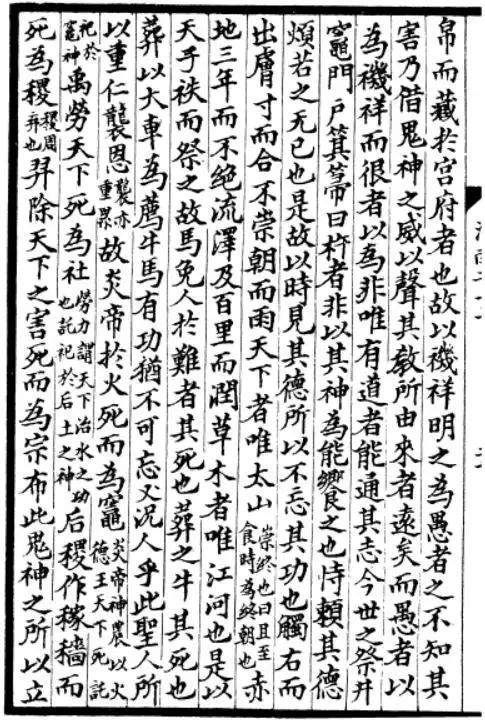 帛而藏於宫府者也故以禨祥明之為愚者之不知其
害乃借鬼神之威以聲其教所由來者遠矣而愚者以
為禨祥而很者以為非唯有道者能通其志今世之祭井
竈門戶箕箒曰杵者非以其神為能饗之也恃頼其德
煩若之无已也是故以時見其德所以不忘其功也觸右而
出膚寸而合不崇朝而雨天下者唯太山崇終也曰旦至食時為終朝也赤
地三年而不絶流澤及百里而潤草木者唯江河也是以
天子祑而祭之故馬免人於難者其死也葬之牛其死也
葬以大車為薦牛馬有功猶不可忘又況人乎此聖人所
以重仁襲恩襲亦重累故炎帝於火死而為竈炎帝神農以火德王天下死託
祀於竈神禹勞天下死為社勞力謂天下治水之功也託祀於后土之神后稷作稼穡而
死為稷稷周弃也羿除天下之害死而為宗布此鬼神之所以立